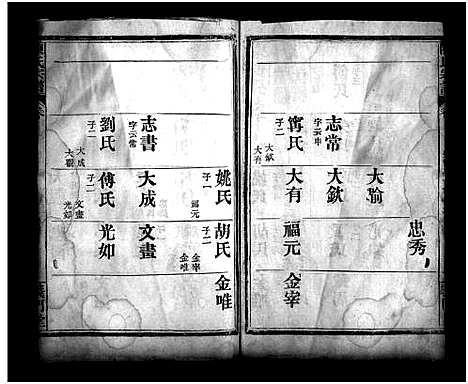 忠秀
大瑜
志常
字云申
大欽
甯氏
子二
大欽
大有
大有
福元
金宰
姚氏
子一
福元
胡氏
子二
金宰
金唯
金唯
志書
字云常
大成
文畫
劉氏
子二
大成
大觀
傅氏
子二
文畫
光如
光如